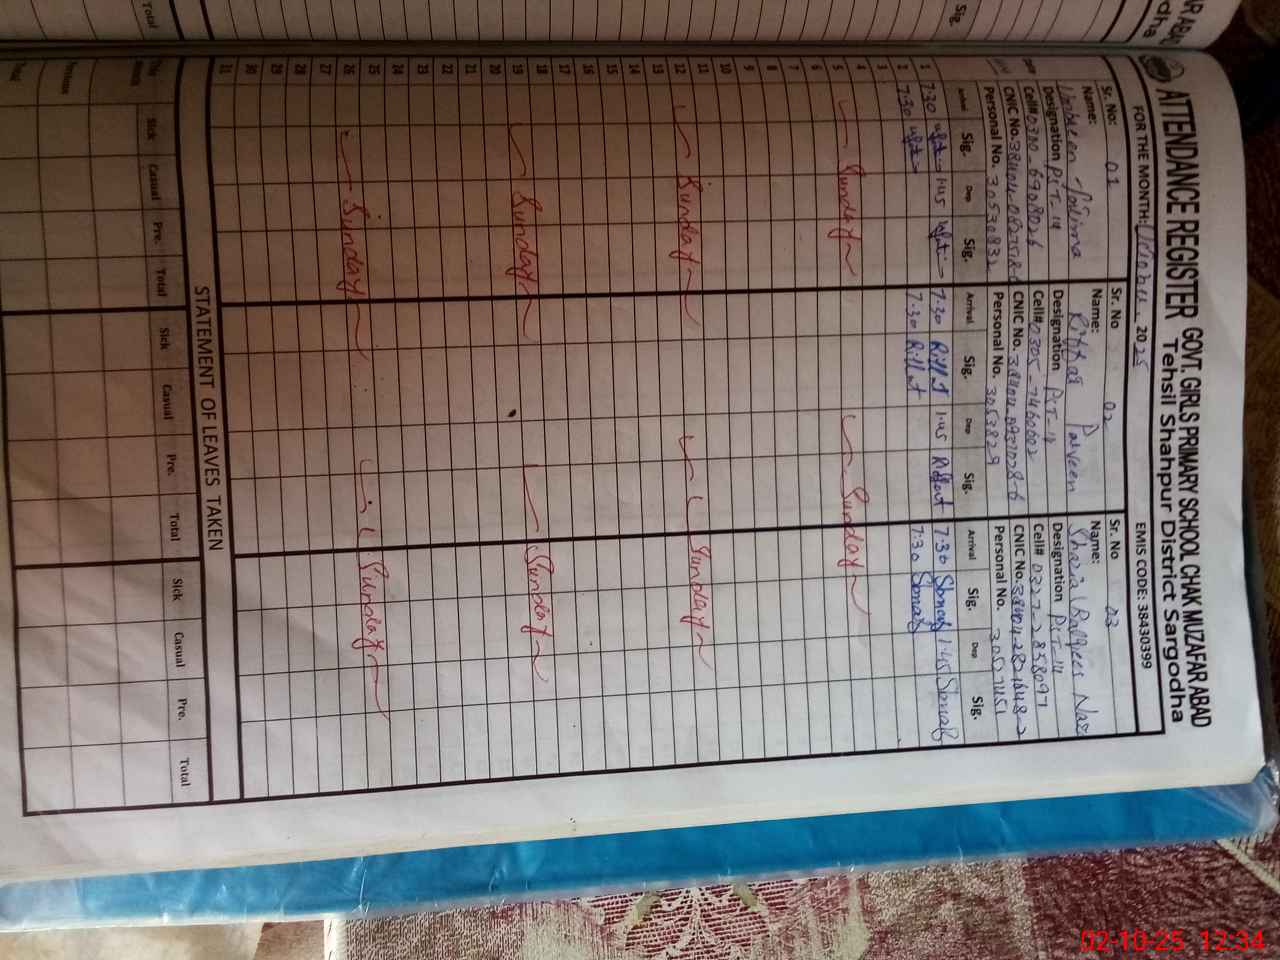 ATTENDANCE REGISTER GOVT. GIRLS PRIMARY SCHOOL CHAK MUZAFAR ABAD
Tehsil Shahpur District Sargodha
FOR THE MONTH: 2025 EMIS CODE: 38430399
Sr. No: 01 Sr. No 02 Sr. No 03
Name: Name: Riffat Parveen Name: Shazia Balqees Naz
Designation PST-14 Designation PST-14 Designation PST-14
Cell# 0300-6908026 Cell# 0305-7460002 Cell# 0327-2858097
CNIC No. CNIC No. CNIC No.
Personal No. 30530832 Personal No. 3053829 Personal No. 30527451
Arrival Sig. Dep Sig. Arrival Sig. Dep Sig. Arrival Sig. Dep Sig.
1 7:30 1:45 7:30 Riffat 1:45 Riffat 7:30 1:45
2 7:30 7:30 Riffat 7:30
3
4
5 Sunday Sunday
6
7
8
9
10
11
12 Sunday Sunday
13
14
15
16
17
18
19 Sunday Sunday
20
21
22
23
24
25
26 Sunday Sunday
27
28
29
30
31
STATEMENT OF LEAVES TAKEN
Sick Casual Pre. Total Sick Casual Pre. Total Sick Casual Pre. Total
Total
Total
Sig.
02-10-25 12:34